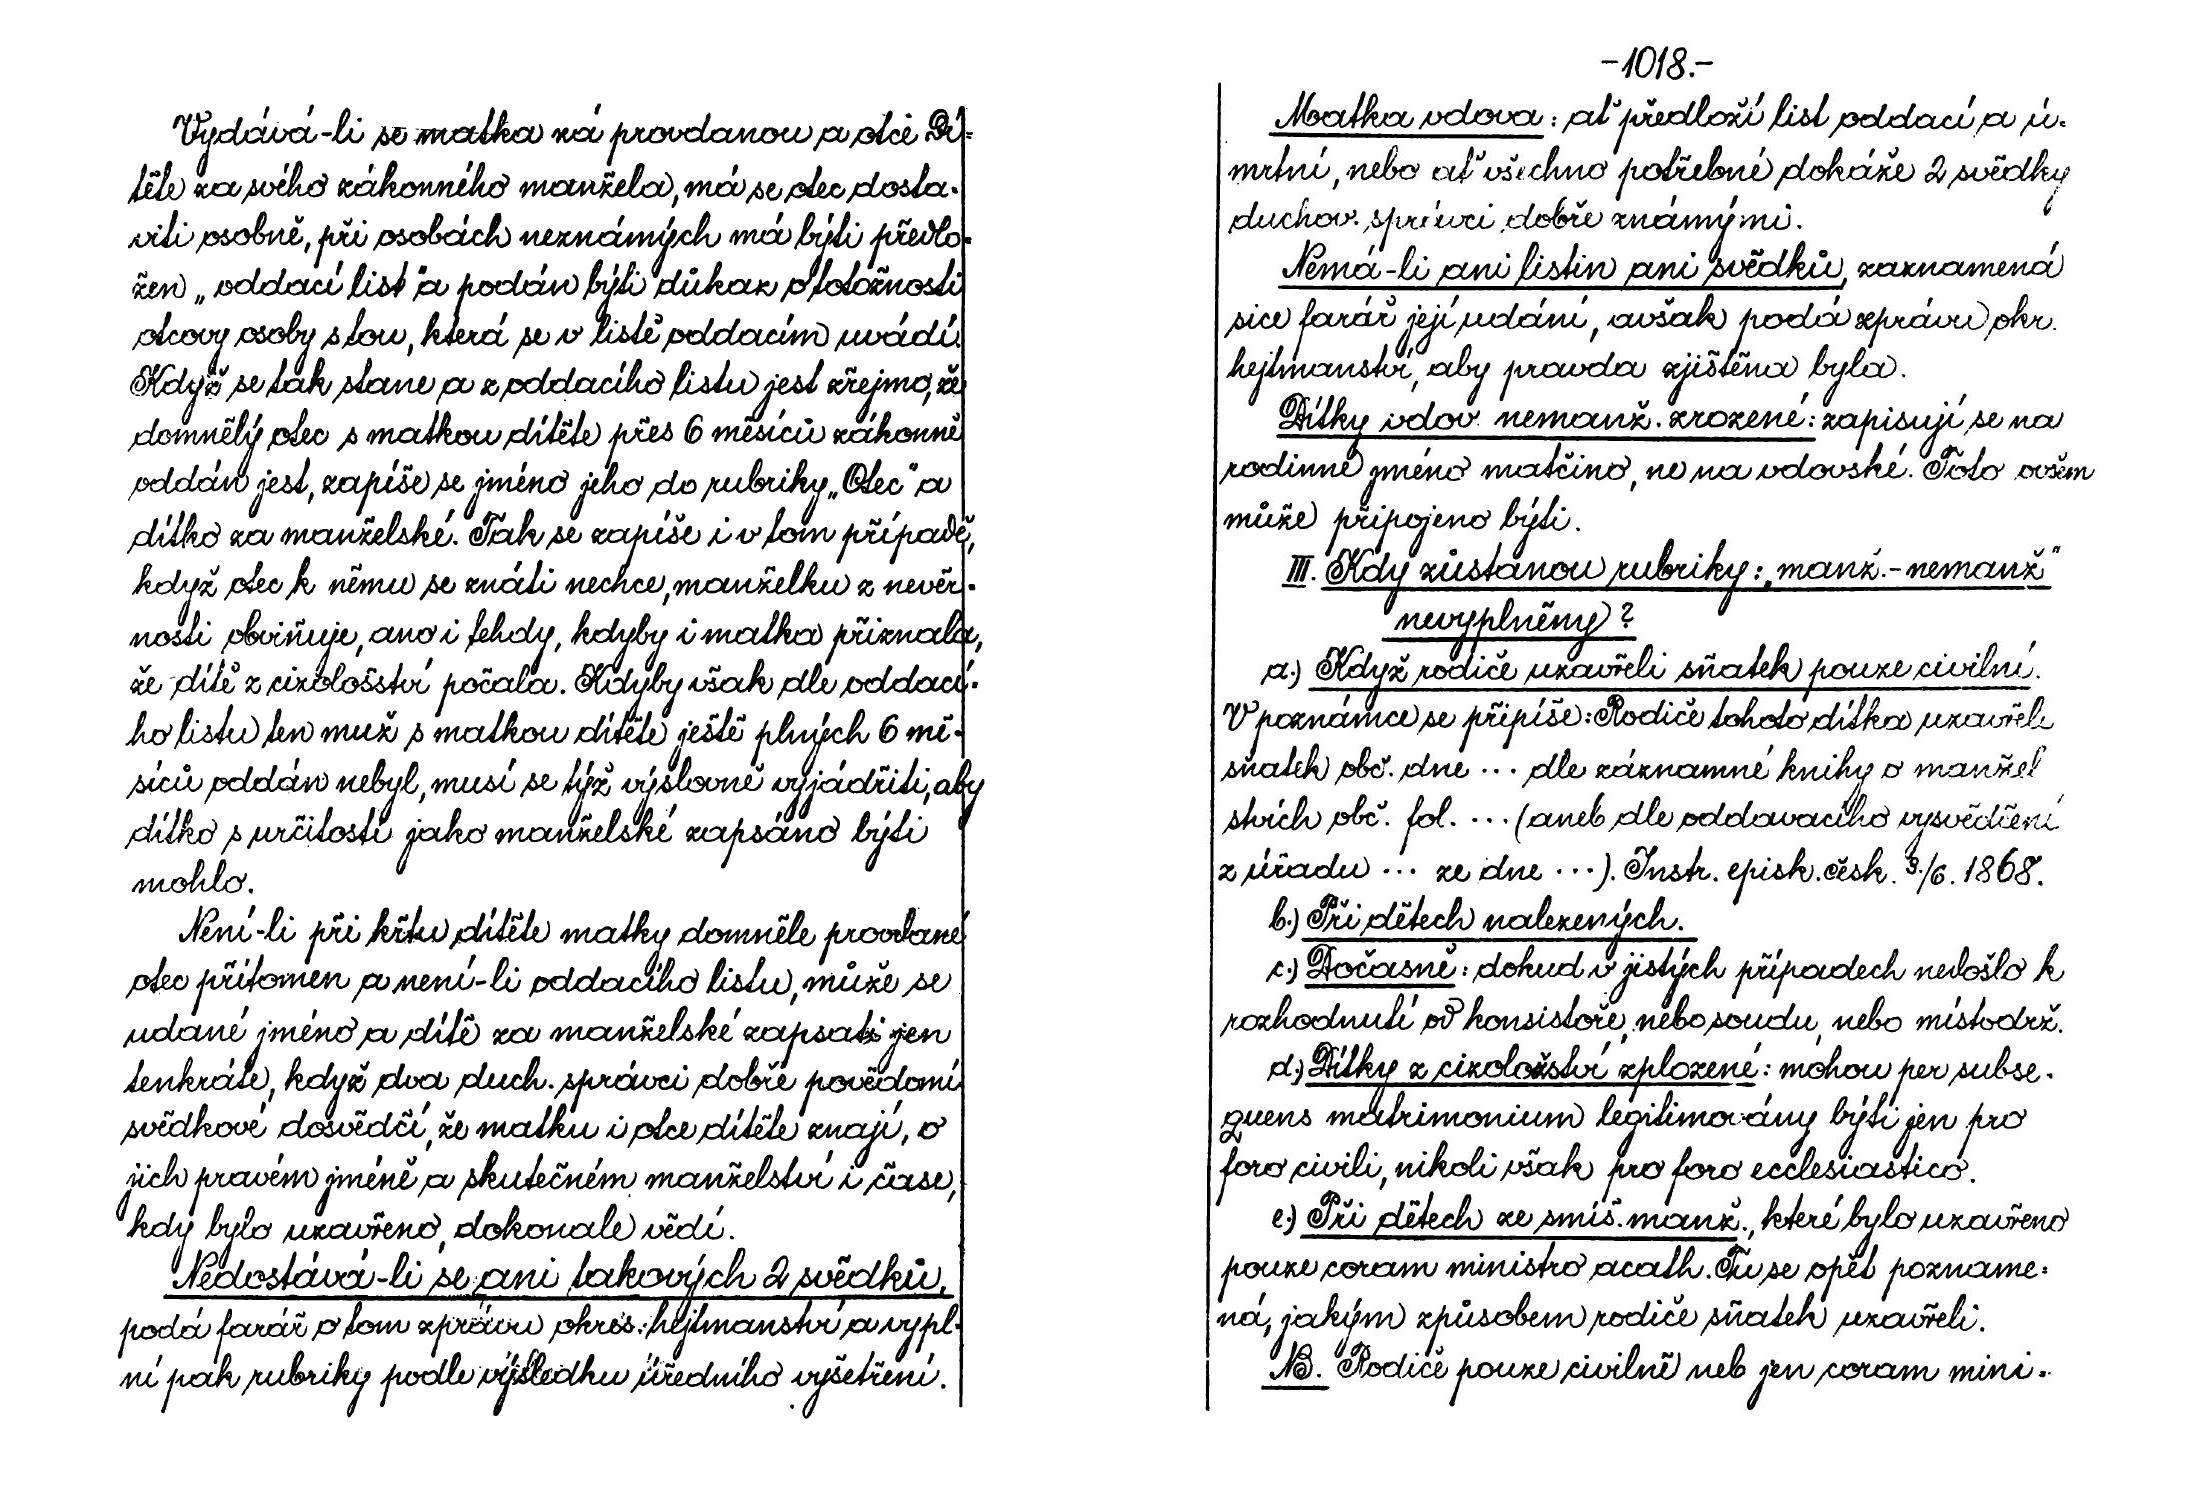 Vydává-li se matka zá provdanou a otce Dí-
těte za svého zákonného manžela, má se otec dosta-
viti osobně, při osobách neznámých má býti předlo-
žen „oddací list" a podán býti důkaz o totožnosti
otcovy osoby s tou, která se v listě oddacím uvádí.
Když se tak stane a z oddacího listu jest zřejmo, že
domnělý otec s matkou dítěte přes 6 měsíců zákonně
oddán jest, zapíše se jméno jeho do rubriky „Otec" a
dítko za manželské. Tak se zapíše i v tom případě,
když otec k němu se znáti nechce, manželku z nevěr-
nosti obviňuje, ano i tehdy, kdyby i matka přiznala,
že dítě z cizoložství počala. Kdyby však dle oddací-
ho listu ten muž s matkou dítěte ještě plných 6 mě-
síců oddán nebyl, musí se týž výslovně vyjádřiti, aby
dítko s určitostí jako manželské zapsáno býti
mohlo.
Není-li při křtu dítěte matky domněle provdané
otec přítomen a není-li oddacího listu, může se
udané jméno a dítě za manželské zapsati jen
tenkráte, když dva duch. správci dobře povědomí
svědkové dosvědčí, že matku i otce dítěte znají, o
jich pravém jméně a skutečném manželství i čase,
kdy bylo uzavřeno, dokonale vědí.
Nedostává-li se ani takových 2 svědků,
podá farář o tom zprávu okres. hejtmanství a vypl-
ní pak rubriky podle výsledku úředního vyšetření.
-1018.-
Matka vdova: ať předloží list oddací a ú-
mrtní, nebo ať všechno potřebné dokáže 2 svědky
duchov. správci dobře známými.
Nemá-li ani listin ani svědků, zaznamená
sice farář její udání, avšak podá zprávu okr.
hejtmanství, aby pravda zjištěna byla.
Dítky vdov nemanž. zrozené: zapisují se na
rodinné jméno matčino, ne na vdovské. Toto ovšem
může připojeno býti.
III. Kdy zůstanou rubriky: „manž.-nemanž"
nevyplněny?
a.) Když rodiče uzavřeli sňatek pouze civilní.
V poznámce se připíše: Rodiče tohoto dítka uzavřeli
sňatek obč. dne ... dle záznamné knihy o manžel
stvích obč. fol. ... (aneb dle oddavacího vysvědčení
z úřadu ... ze dne ...). Instr. episk. česk. 3./6. 1868.
b.) Při dětech nalezených.
c.) Dočasně: dokud v jistých případech nedošlo k
rozhodnutí od konsistoře, nebo soudu, nebo místodrž.
d.) Dítky z cizoložství zplozené: mohou per subse-
quens matrimonium legitimovány býti jen pro
foro civili, nikoli však pro foro ecclesiastico.
e.) Při dětech ze smíš. manž., které bylo uzavřeno
pouze coram ministro acath. Tu se opět pozname-
ná, jakým způsobem rodiče sňatek uzavřeli.
NB. Rodiče pouze civilně neb jen coram mini-